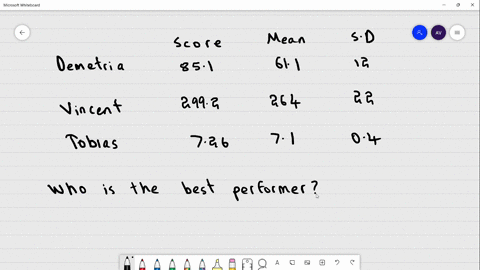 Microsoft Whiteboard
AV
Score Mean S.D
Demetria 85.1 61.1 12
Vincent 299.2 264 22
Tobias 7.26 7.1 0.4
Who is the best performer?